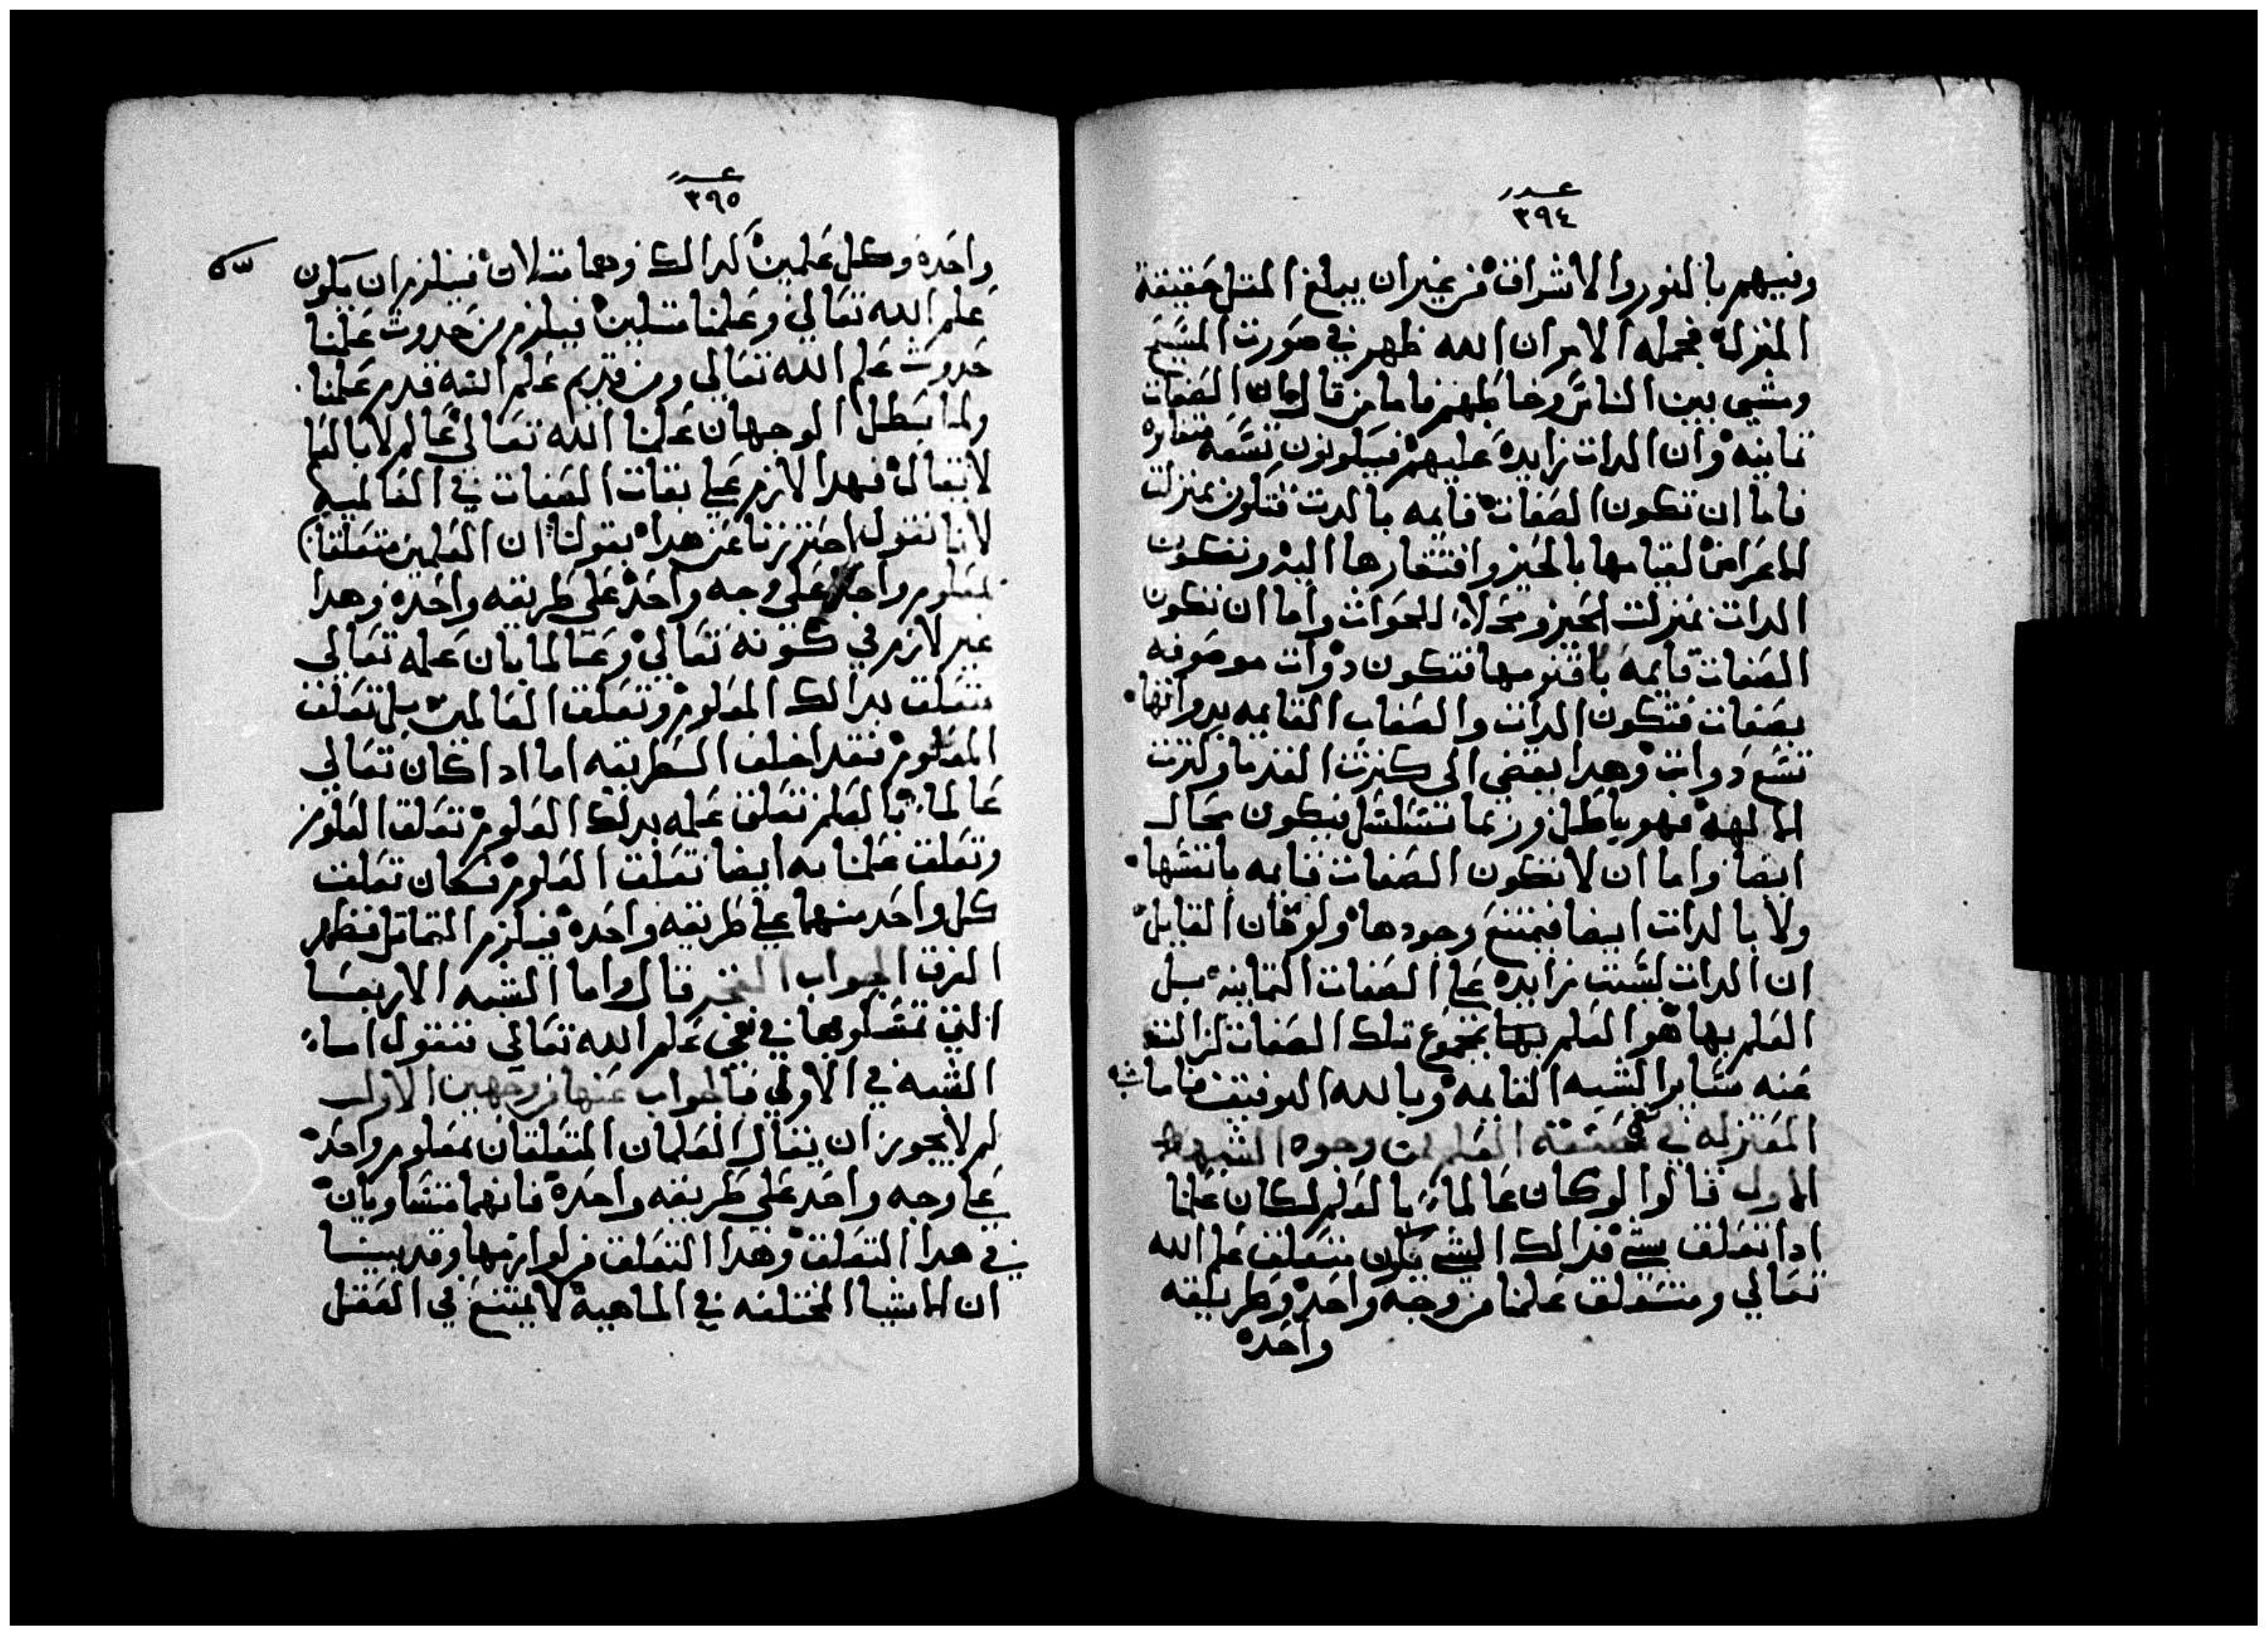 عدد
٣٩٤
وفيهم بالنور والاشراق من غير ان يبلغ المثل حقيقة
المنزلة فجملة الامر ان الله ظهر في صورت المسيح
ومشي بين الناس وخاطبهم فاما من قال ان الصفات
تمانيه وان الدات زايدة عليهم فيكونون تسعه متغايره
فاما ان تكون الصفات قايمه بالدت فتكون بمنزلت
الاعراض لقيامها بالحيز وافتقارها اليه وتكون
الدات بمنزلت الحيز ومحلا للحوادت واما ان تكون
الصفات قايمه باقنومها فتكون دوات موصوفه
بصفات فتكون الدات والصفات القايمه بدواتها
تسع دوات وهدا يفضي الى كترت القدما وكترت
الالهة فهو باطل وربما تتسلسل فيكون محال
ايضا واما ان لا تكون الصفات قايمه بانفسها
ولا بالدات ايضا فيمتنع وجودها ولو كان القايل
ان الدات ليست زايده علي الصفات التمانيه بل
العلم بها هو العلم بمجموع تلك الصفات لزالت
عنه ساير الشبه القايمه وبالله التوفيق فاما شبه
المعتزله في
الاول قالوا لو كان عالما بالعلم لكان علمنا
ادا تعلق بشي فدالك الشي يكون متعلق علم الله
تعالي ومتعلق علمنا من وجه واحد وطريقه
واحدة
عدد
٣٩٥
واحدة وكل علمين كدالك فهما متلان فيلزم ان يكون
علم الله تعالي وعلمنا متلين فيلزم من حدوت علمنا
حدوت علم الله تعالي ومن قديم علم الله قدم علمنا
ولما بطل الوجهان علمنا الله تعالي عالم لا بالعلم
لا يقال فهدا لازم علي تقات الصفات في العالميه
لانا نقول احترزنا عن هدا بقولنا ان العلمين متعلقان
بمعلوم واحد علي وجه واحد علي طريقه واحدة وهدا
غير لازم في كونه تعالي وعالما بان علمه تعالي
متعلق بدالك المعلوم وتعلق العالمين بل تعلق
المعلوم فقد اختلف الطريقه اما ادا كان تعالي
عالما بالعلم تعلق علمه بدلك المعلوم تعلق العلوم
وتعلق علمنا به ايضا تعلق العلوم فكان تعلق
كل واحد منهما علي طريقه واحدة فيلزم التماتل فظهر
الفرق الجواب الفخر قال واما الشبه الاربعا
التي تمسكوا بها في نفي علم الله تعالي فنقول اما
الشبه في الاولي فالجواب عنها من وجهين الاول
لم لا يجوز ان يقال العلمان المتعلقان بمعلوم واحد
علي وجه واحد علي طريقه واحدة فانهما متساويان
في هدا التعلق وهدا التعلق من لوازمها وقد بينا
ان الاشيا المختلفه في الماهية لا يمتنع في العقل